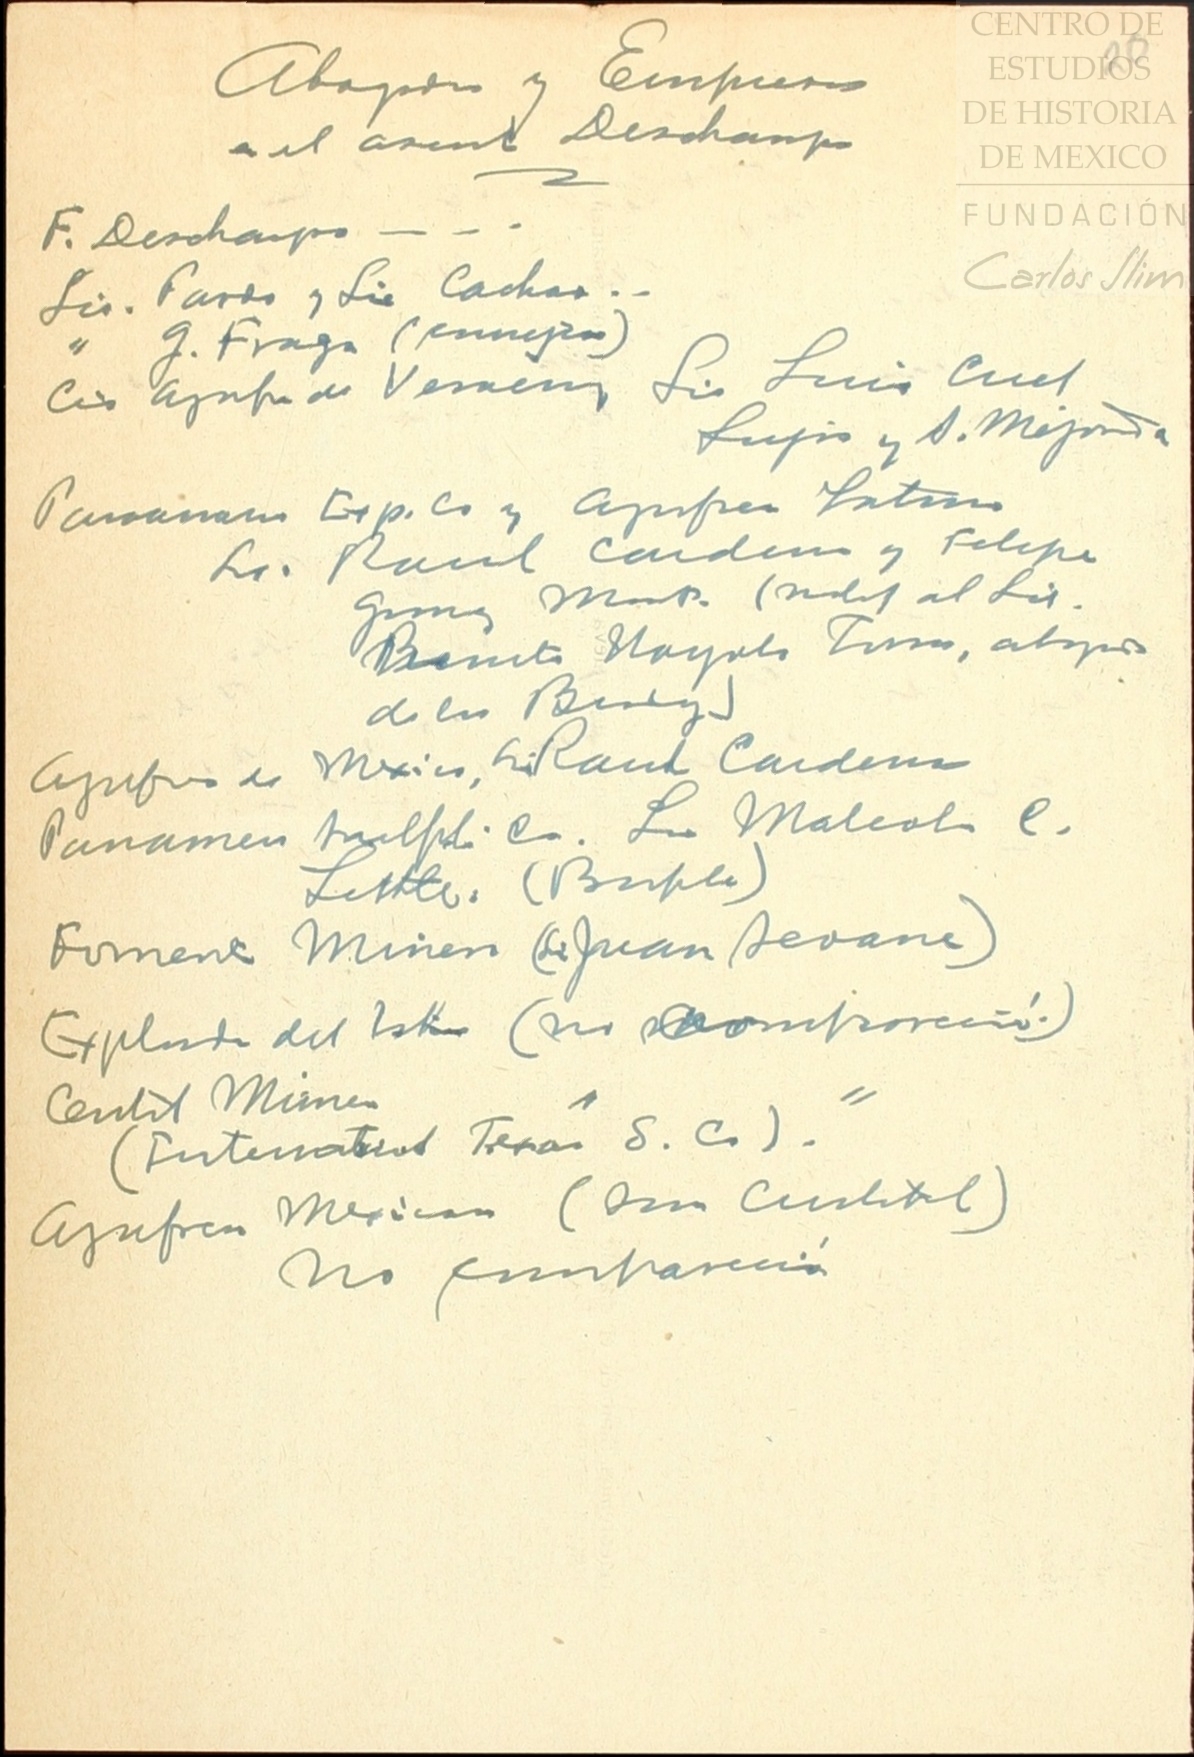 CENTRO DE
ESTUDIOS
DE HISTORIA
DE MEXICO
FUNDACIÓN
Carlos Slim
Abogados y Empresas
en el asunto Deschamps
F. Deschamps - - -
Lic. Pardo y Lic
" G. Fraga (consejero)
Cia Azufre de Veracruz, Lic Luis
y A. Mejorada
Panamerican Exp. Co y Azufrera
Lic. Raul Cardenas y Felipe
Gomez Mont. ( al Lic.
Benito , abogado
de los )
Azufres de Mexico, Lic Raul Cardenas
Panamerican Sulphur Co. Lic Malcolm C.
Little.
Fomento Minero (Lic Juan Seoane)
Explorada del Istmo (no compareció)
Central Minera " "
(International Texas S. Co).
Azufrera Mexicana (
No compareció